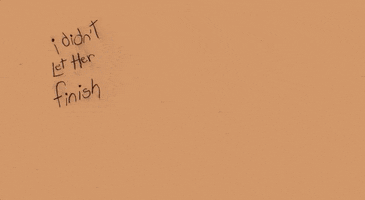 i didn't
Let Her
finish